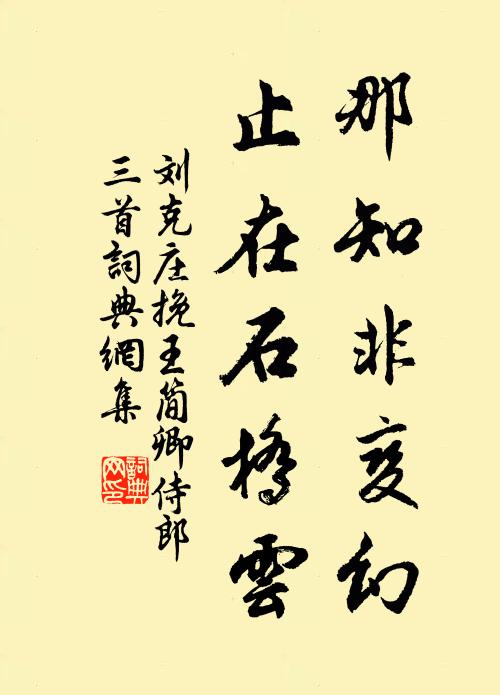 那知非变幻
止在石橋雲
刘克庄挽王简卿侍郎
三首詞典網集
詞典
网印